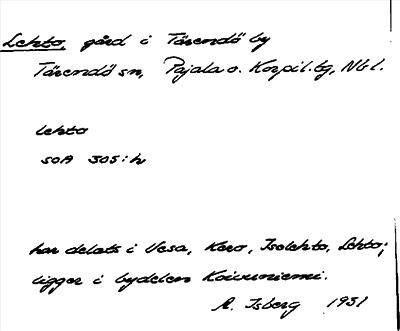 Lehto, gård i Tärendö by
Tärendö sn, Pajala o. Korpil. tg, Nbl.
lehto
SOA 305:h
har delats i Vesa, Kero, Isolehto, Lehto;
ligger i bydelen Koivuniemi.
R. Isberg 1931